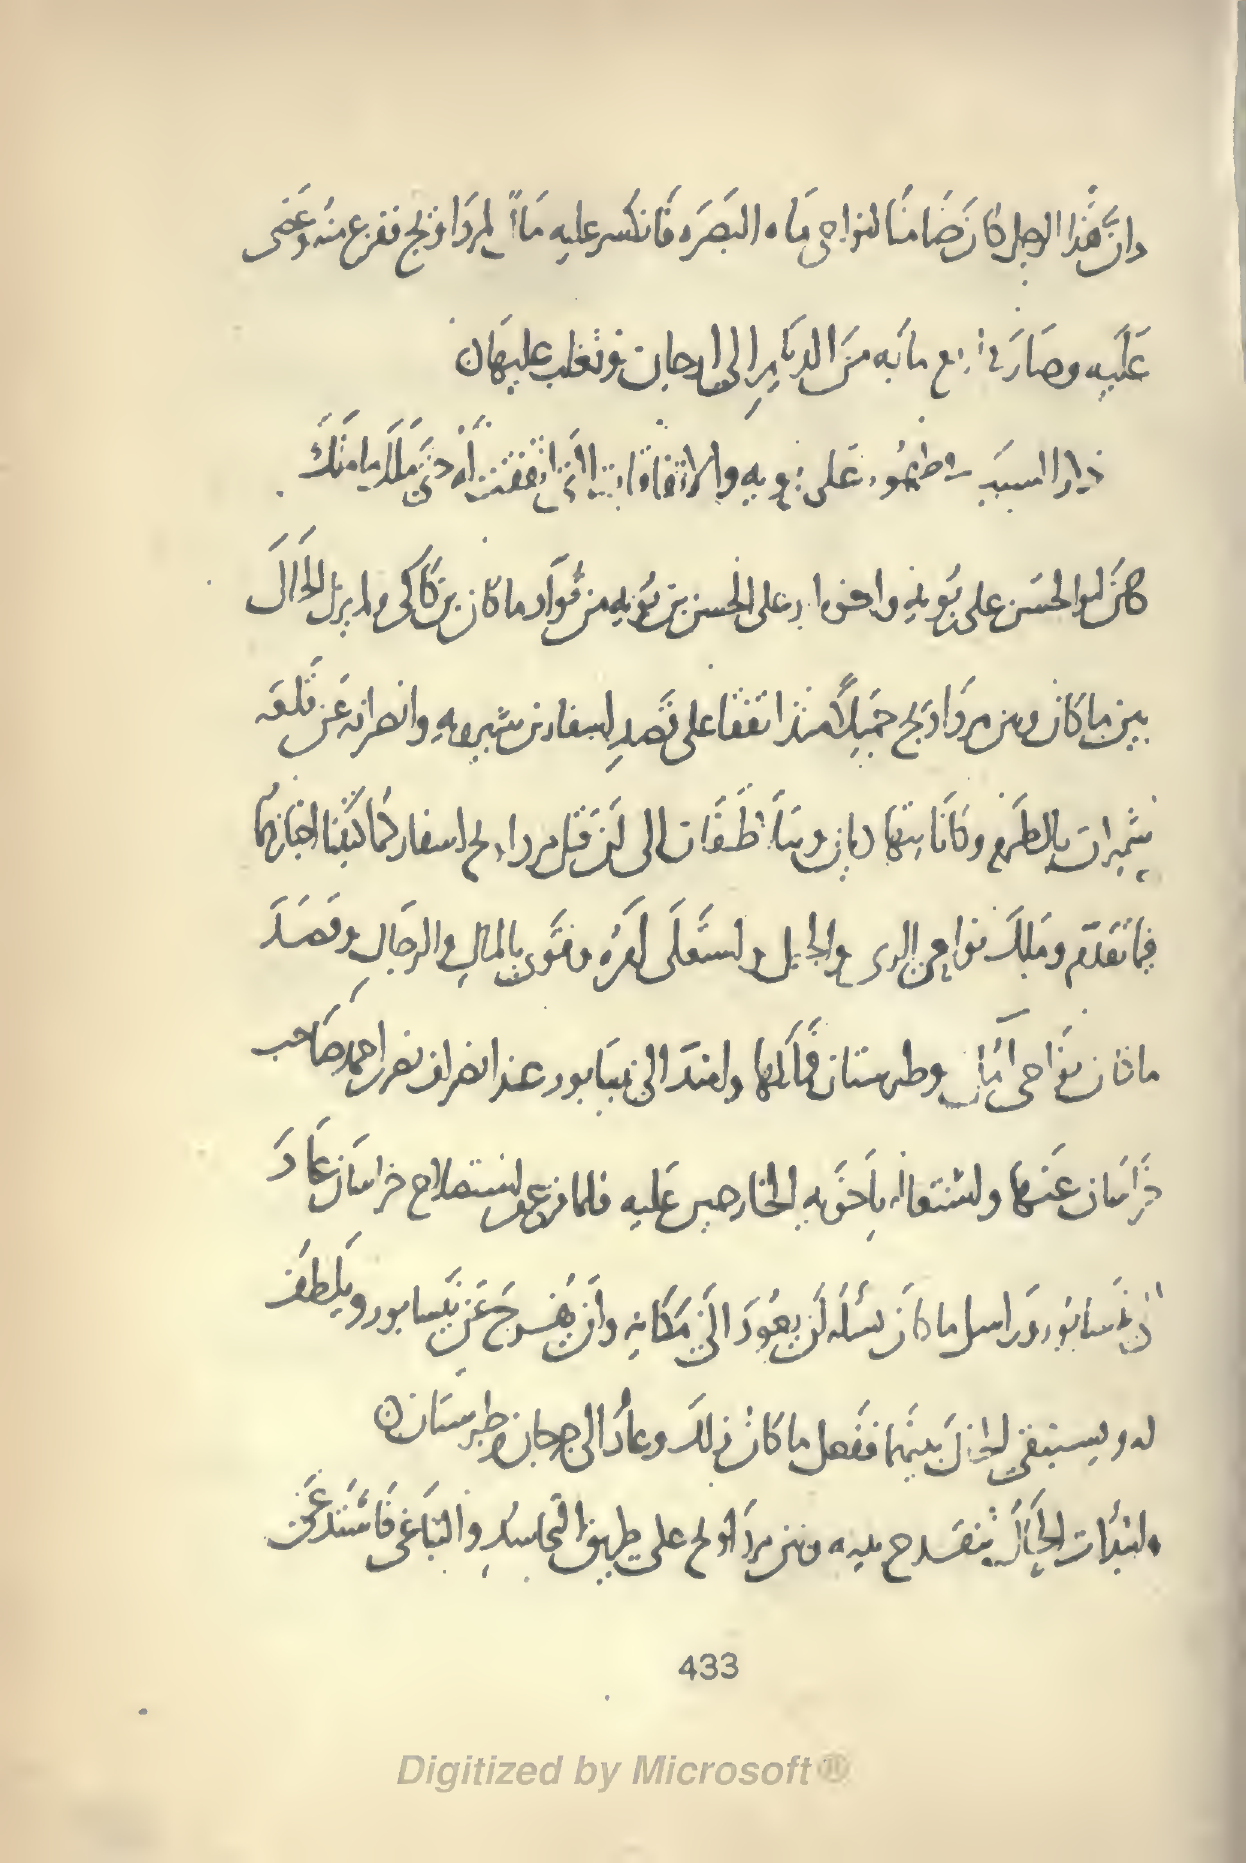 وانّ هذا الرجل كان ضامنًا لنواحي ماه البصره فانكسر عليه مالٌ لمرداويج ففزع منه وعصى
عليه وصار في اربع مائه من الديلم الى ارجان وتغلب عليها
ذكر السبب في ظهور على بن بويه والاتفاقات التي اتفقت له حتى ملك ما ملك
كان ابو الحسن على بن بويه واخوه ابو على الحسن بن بويه من قواد ماكان بن كاكى ولم يزل الحال
بين ماكان وبين مرداويج جميلًا منذ اتفقا على قصد اسفار بن شيرويه وانصرافه عن قلعه
شميران بالطرم وكانا بينهما الى ان قتل مرداويج اسفار كما كتبنا اخبارهما
فيما تقدّم وملك نواحى الرى والجبل واستعلى امره وقوى بالمال والرجال وقصد
ماكان بنواحى وطبرستان فملكها وامتدّ الى نيسابور عند انصراف نصر بن احمد صاحب
خراسان عنها واشتغاله باخوته الخارجين عليه فلما فرغ من استصلاح خراسان عاد
الى نيسابور وراسل ماكان يسئله ان يعود الى مكانه وان يفرج عن نيسابور ويلطف
له ويستبقى الحال بينهما ففعل ماكان ذلك وعاد الى جرجان وطبرستان
وابتدأت الحال تنقدح بينه وبين مرداويج على طريق التحاسد والتباغى فاستدعى
433
Digitized by Microsoft®